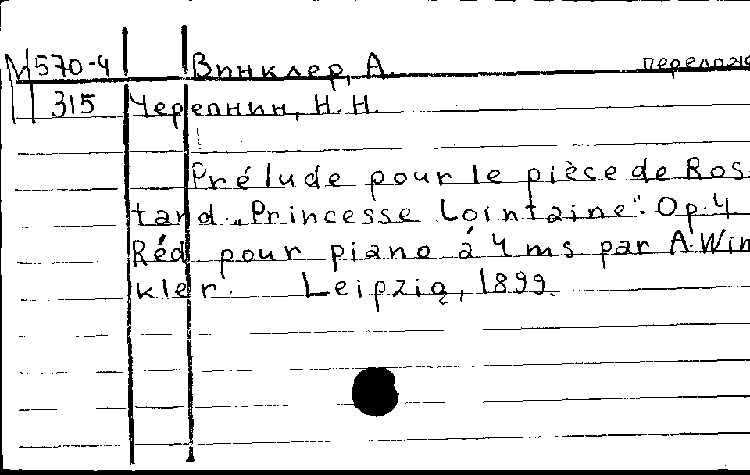 М 570-4 Винклер, А. перелож
315 Черепнин, Н. Н.
Prélude pour le pièce de Ros-
tand „Princesse Lointaine". Op. 4
Réd. pour piano à 4 ms par A. Win
kler. Leipzig, 1899.